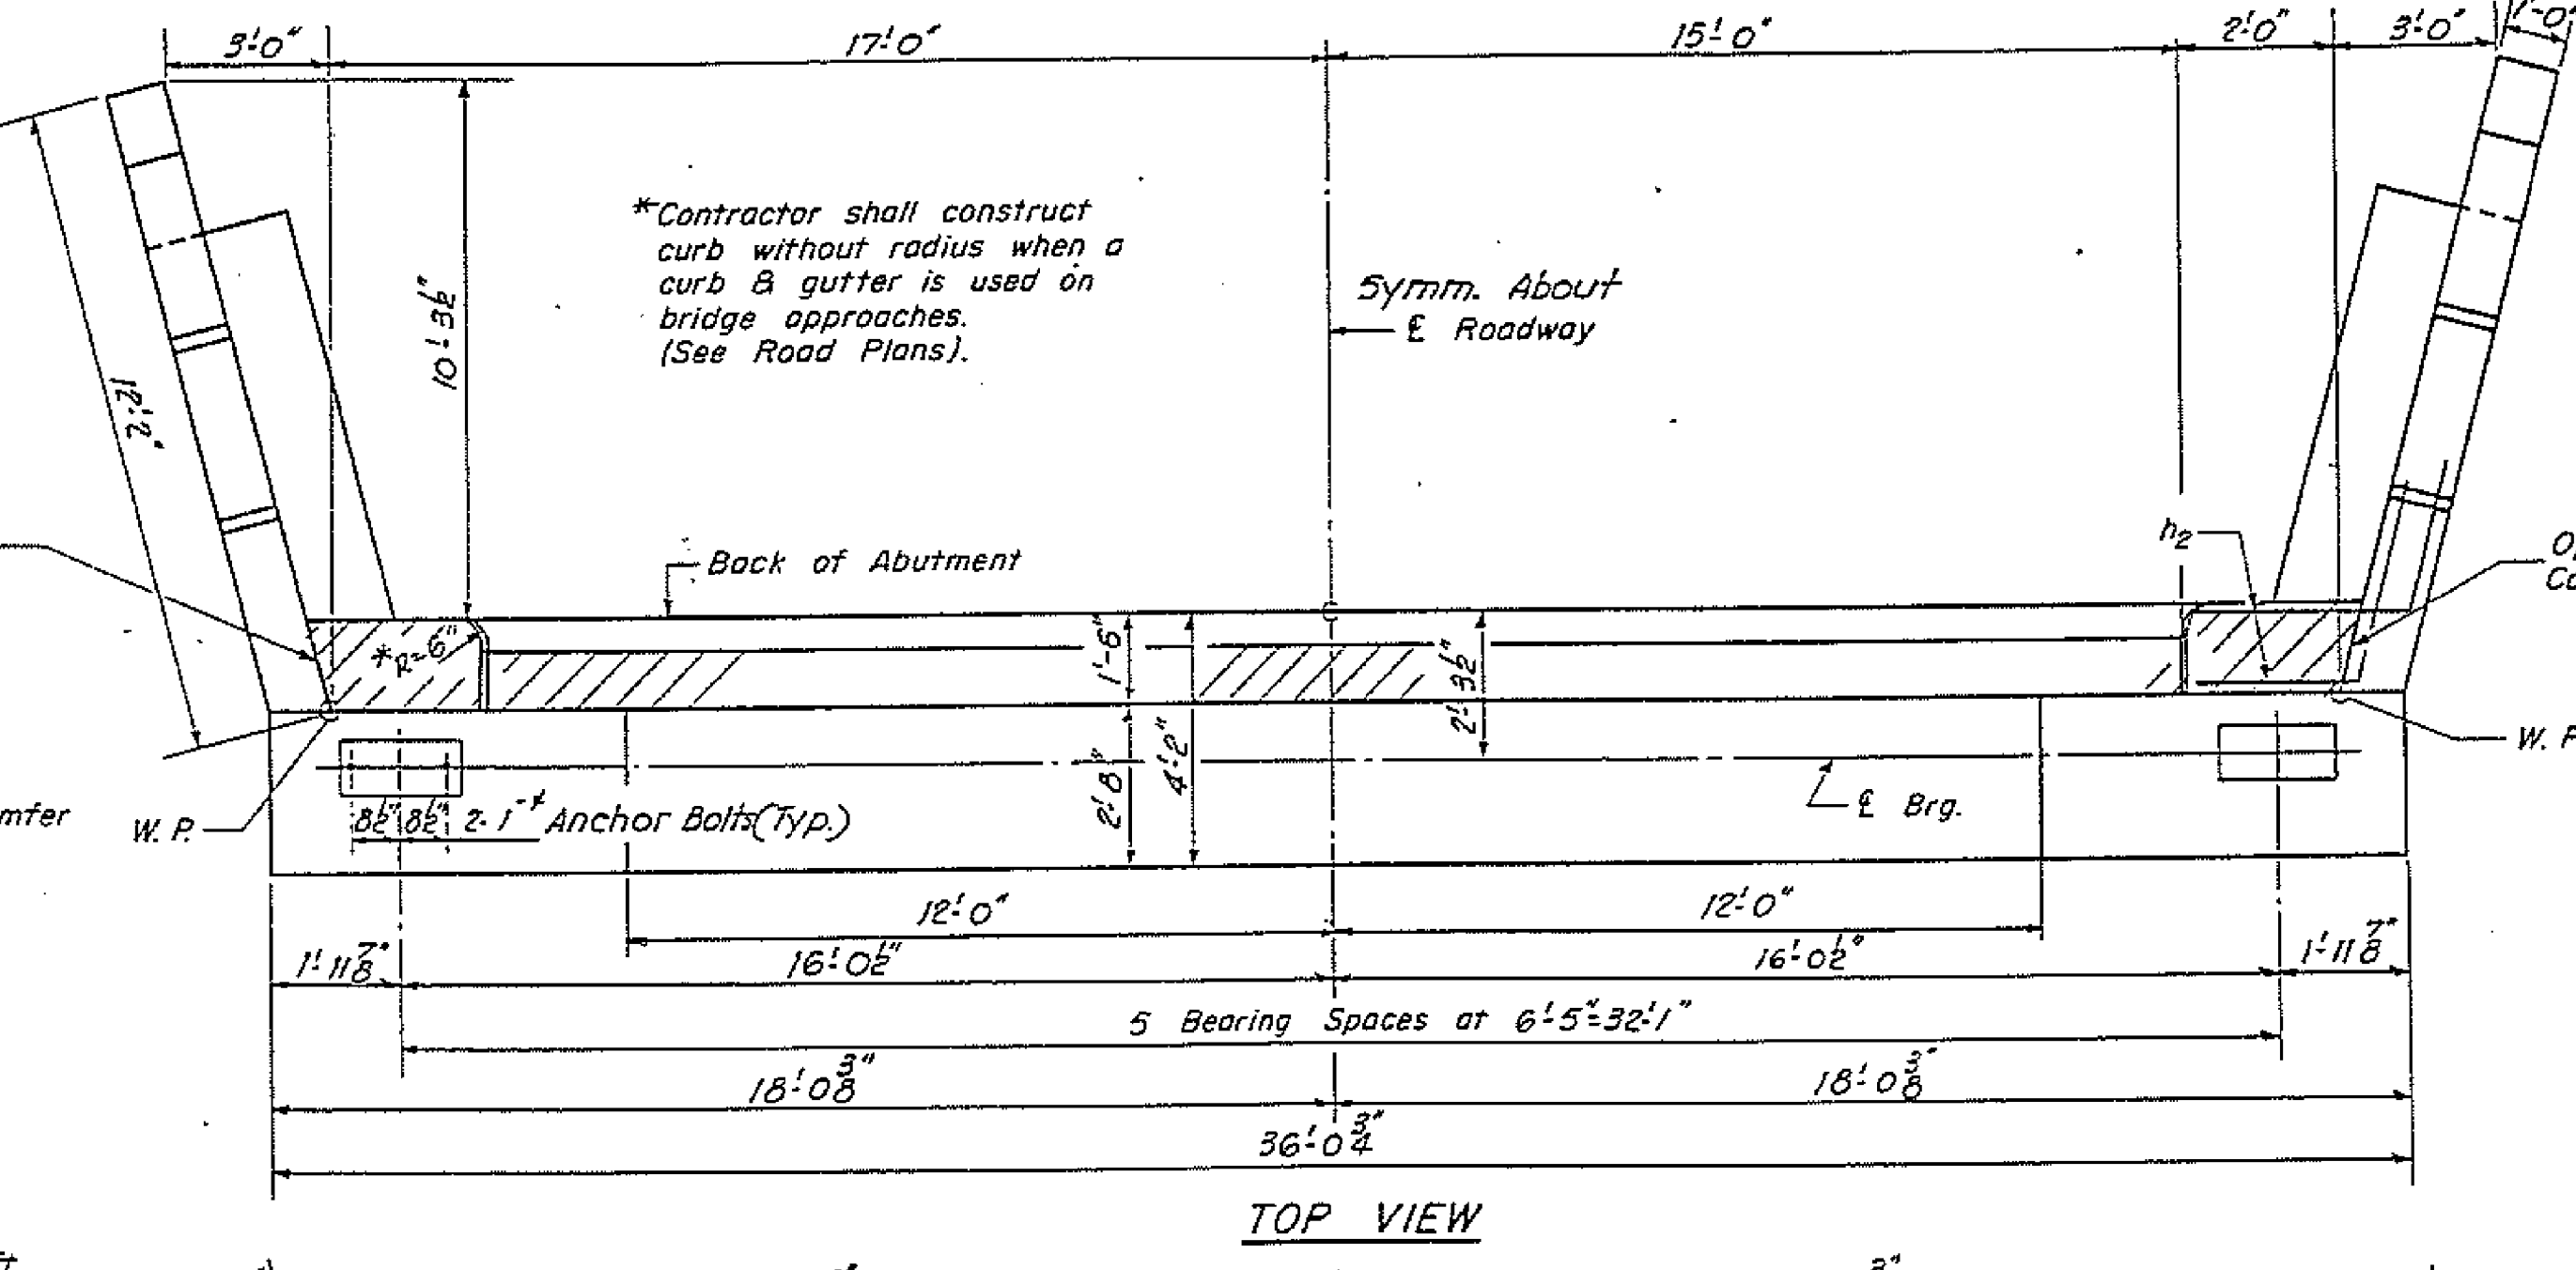 3'-0" 17'-0" 15'-0" 2'-0" 3'-0" 1'-0"
*Contractor shall construct
curb without radius when a
curb & gutter is used on
bridge approaches.
(See Road Plans).
10'-3½"
12'-2"
Symm. About
℄ Roadway
Back of Abutment
h2
*R=6"
1'-6"
2'-8"
4'-2"
2'-3½"
W. P.
W. P.
8½" 8½" 2-1"ϕ Anchor Bolts(Typ.)
℄ Brg.
12'-0" 12'-0"
1'-11⅞" 16'-0½" 16'-0½" 1'-11⅞"
5 Bearing Spaces at 6'-5"=32'-1"
18'-0⅜" 18'-0⅜"
36'-0¾"
TOP VIEW